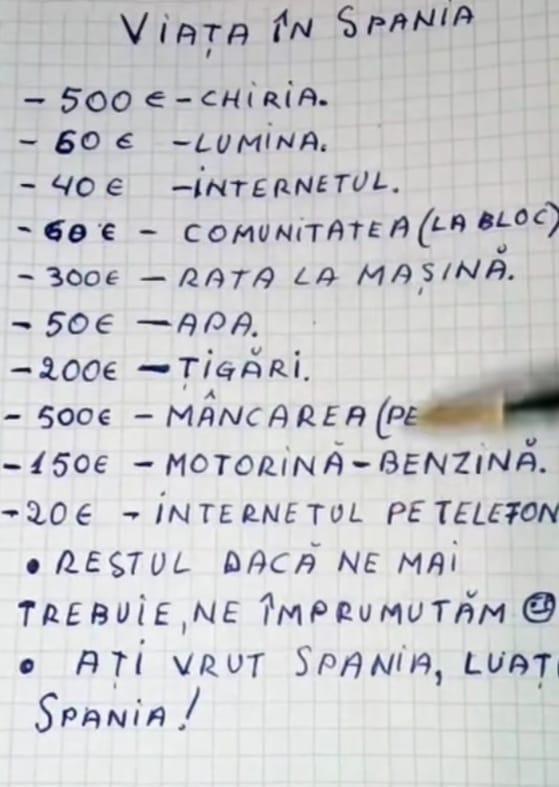 VIAȚA ÎN SPANIA
- 500 € - CHIRIA.
- 60 € - LUMINA.
- 40 € - INTERNETUL.
- 60 € - COMUNITATEA (LA BLOC)
- 300€ - RATA LA MAȘINĂ.
- 50 € - APA.
- 200€ - ȚIGĂRI.
- 500€ - MÂNCAREA (PE
- 150€ - MOTORINĂ - BENZINĂ.
- 20 € - INTERNETUL PE TELEFON
• RESTUL DACĂ NE MAI
TREBUIE, NE ÎMPRUMUTĂM ☺
• AȚI VRUT SPANIA, LUAȚI
SPANIA!